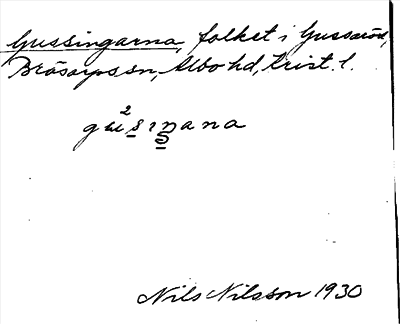 Gussingarna, folket i Gussaröd,
Bråsarps sn, Albo hd, Krist. l.
gu²sıŋana
Nils Nilsson 1930